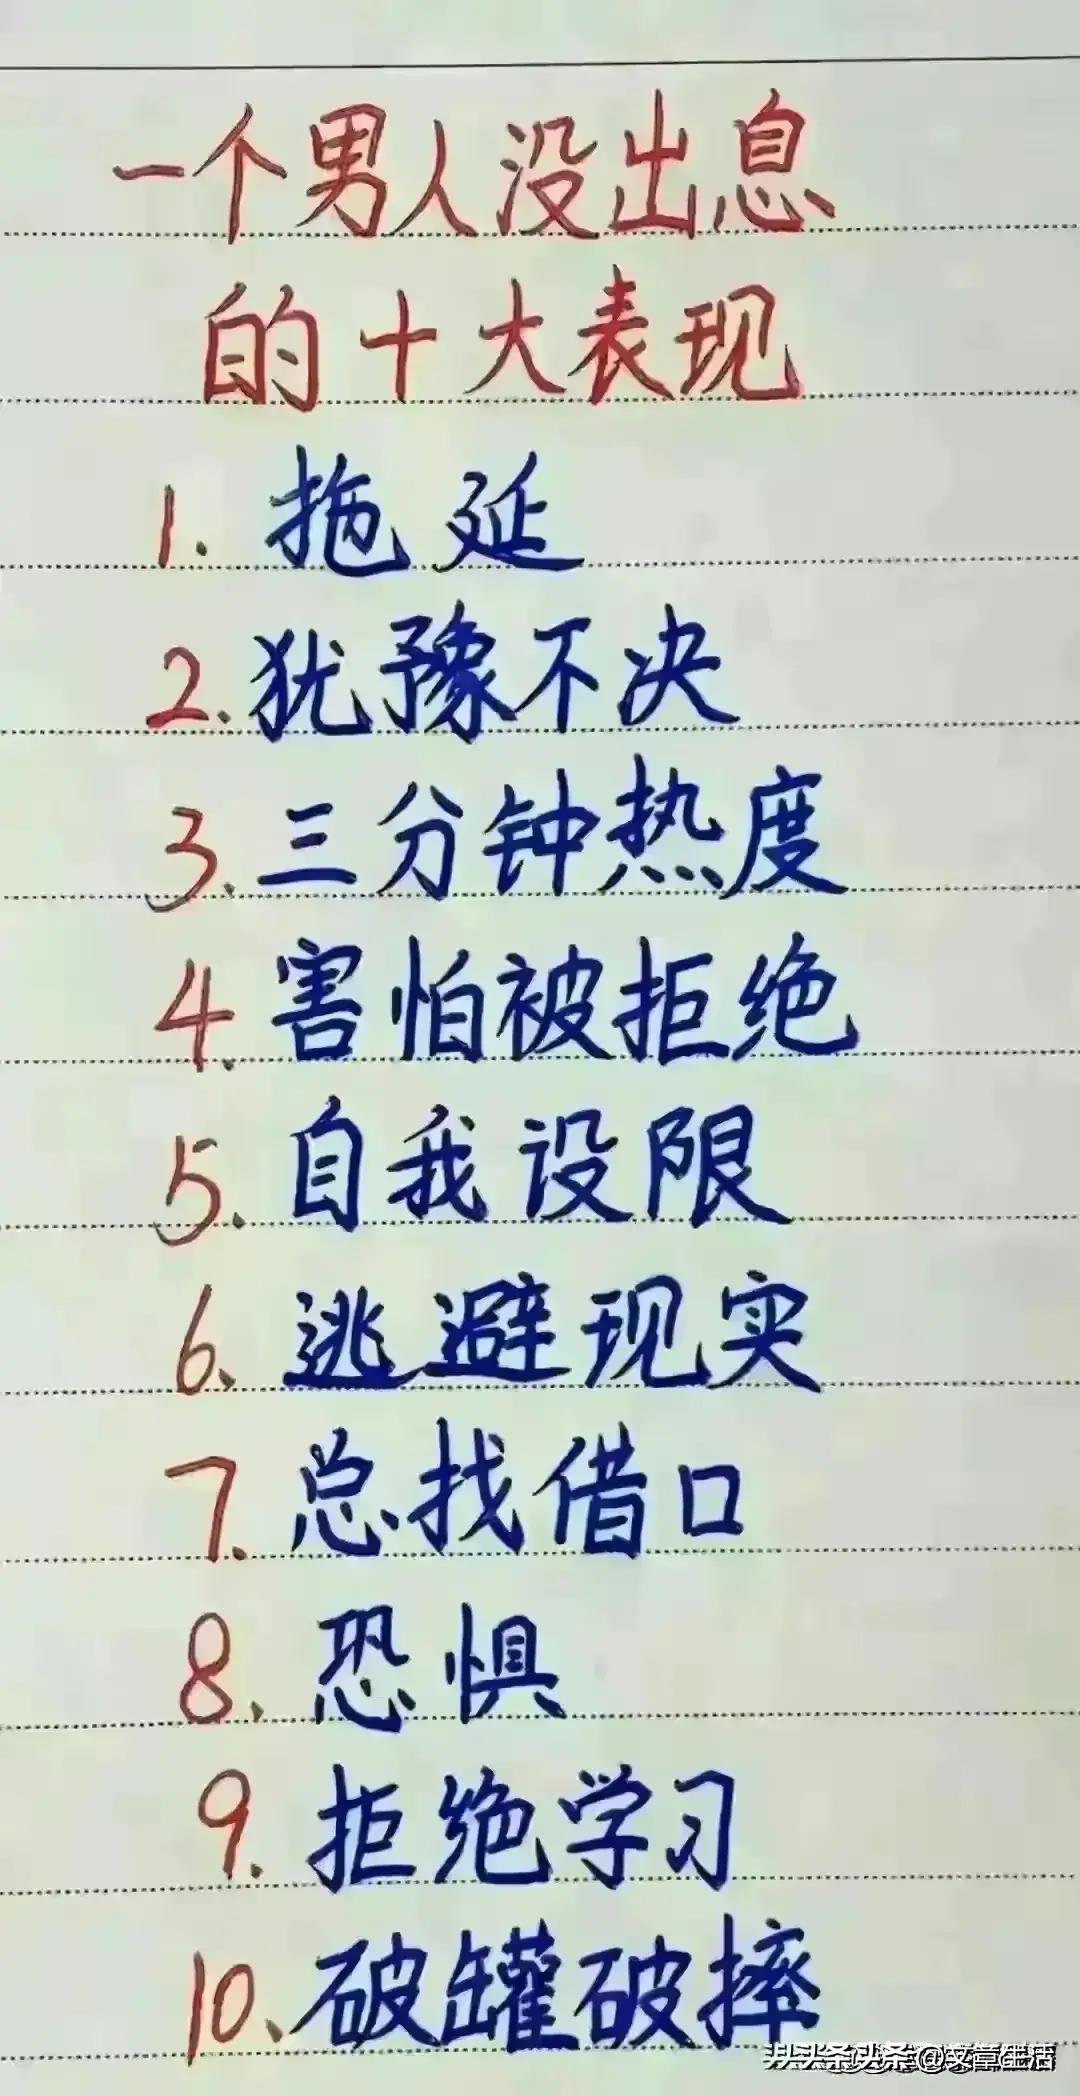 一个男人没出息
的十大表现
1. 拖延
2. 犹豫不决
3. 三分钟热度
4. 害怕被拒绝
5. 自我设限
6、逃避现实
7、总找借口
8、恐惧
9. 拒绝学习
10、破罐破摔